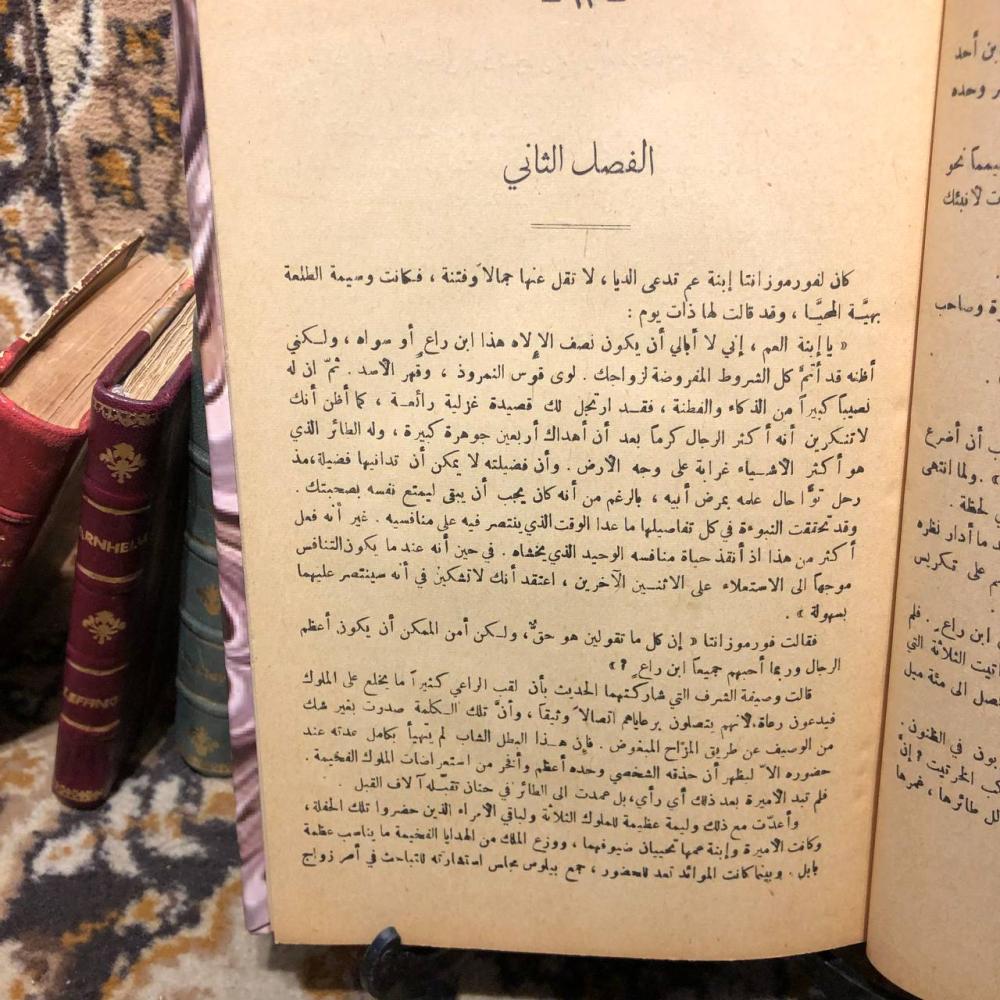 الفصل الثاني
كان لفورموزانتا إبنة عم تدعى الديا، لا تقل عنها جمالاً وفتنة، فكانت وسيمة الطلعة
بهيَّة المحيَّا، وقد قالت لها ذات يوم:
« يا إبنة العم، إني لا أبالي أن يكون نصف الإلاه هذا ابن راعٍ أو سواه، ولكنني
أظنه قد أتمَّ كل الشروط المفروضة لزواجك. لوى قوس النمروذ، وقُهر الأسد. ثمّ ان له
نصيباً كبيراً من الذكاء والفطنة، فقد ارتجل لك قصيدة غزلية رائعة، كما أظن أنك
لا تنكرين أنه أكثر الرجال كرماً بعد أن أهداك أربعين جوهرة كبيرة، وله الطائر الذي
هو أكثر الأشياء غرابة على وجه الأرض. وأن فضيلته لا يمكن أن تدانيها فضيلة، مذ
رحل توًّا حال علمه بمرض أبيه، بالرغم من أنه كان يجب أن يبقى ليمتع نفسه بصحبتك.
وقد تحققت النبوءة في كل تفاصيلها ما عدا الوقت الذي ينتصر فيه على منافسيه. غير أنه فعل
أكثر من هذا اذ أنقذ حياة منافسه الوحيد الذي يخشاه. في حين أنه عند ما يكون التنافس
موجهاً الى الاستعلاء على الاثنين الآخرين، اعتقد أنك لا تشكين في أنه سينتصر عليهما
بسهولة ».
فقالت فورموزانتا « إن كل ما تقولين هو حقٌّ، ولكن أمن الممكن أن يكون أعظم
الرجال وربما أحبهم جميعاً ابن راعٍ ؟ »
قالت وصيفة الشرف التي شاركتهما الحديث بأن لقب الراعي كثيراً ما يخلع على الملوك
فيدعون رعاة، لأنهم يتصلون برعاياهم اتصالاً وثيقاً، وأنَّ تلك الكلمة صدرت بغير شك
من الوصيف عن طريق المزاح المبغوض. فإن هذا البطل الشاب لم يتهيأ بكامل عدته عند
حضوره الاّ ليظهر أن حذقه الشخصي وحده أعظم وأفخر من استعراضات الملوك الفخيمة.
فلم تبد الأميرة بعد ذلك أي رأي، بل عمدت الى الطائر في حنان تقبّله آلاف القبل.
وأعدّت مع ذلك وليمة عظيمة للملوك الثلاثة ولباقي الأمراء الذين حضروا تلك الحفلة،
وكانت الأميرة وإبنة عمها تحييان ضيوفهما، ووزع الملك من الهدايا الفخيمة ما يناسب عظمة
بابل. وبينما كانت الموائد تعد للحضور، جمع بيلوس مجلس استشارته للتباحث في أمر زواج
بن أحد
وحده
نحو
لأنبئك
وصاحب
أن أضرع
ولما انتهى
لحظة.
ما أدار نظره
على تكريس
ابن راعٍ. فلم
الثلاثة التي
الى مئة ميل
في الظنون.
طائرها، غمرها